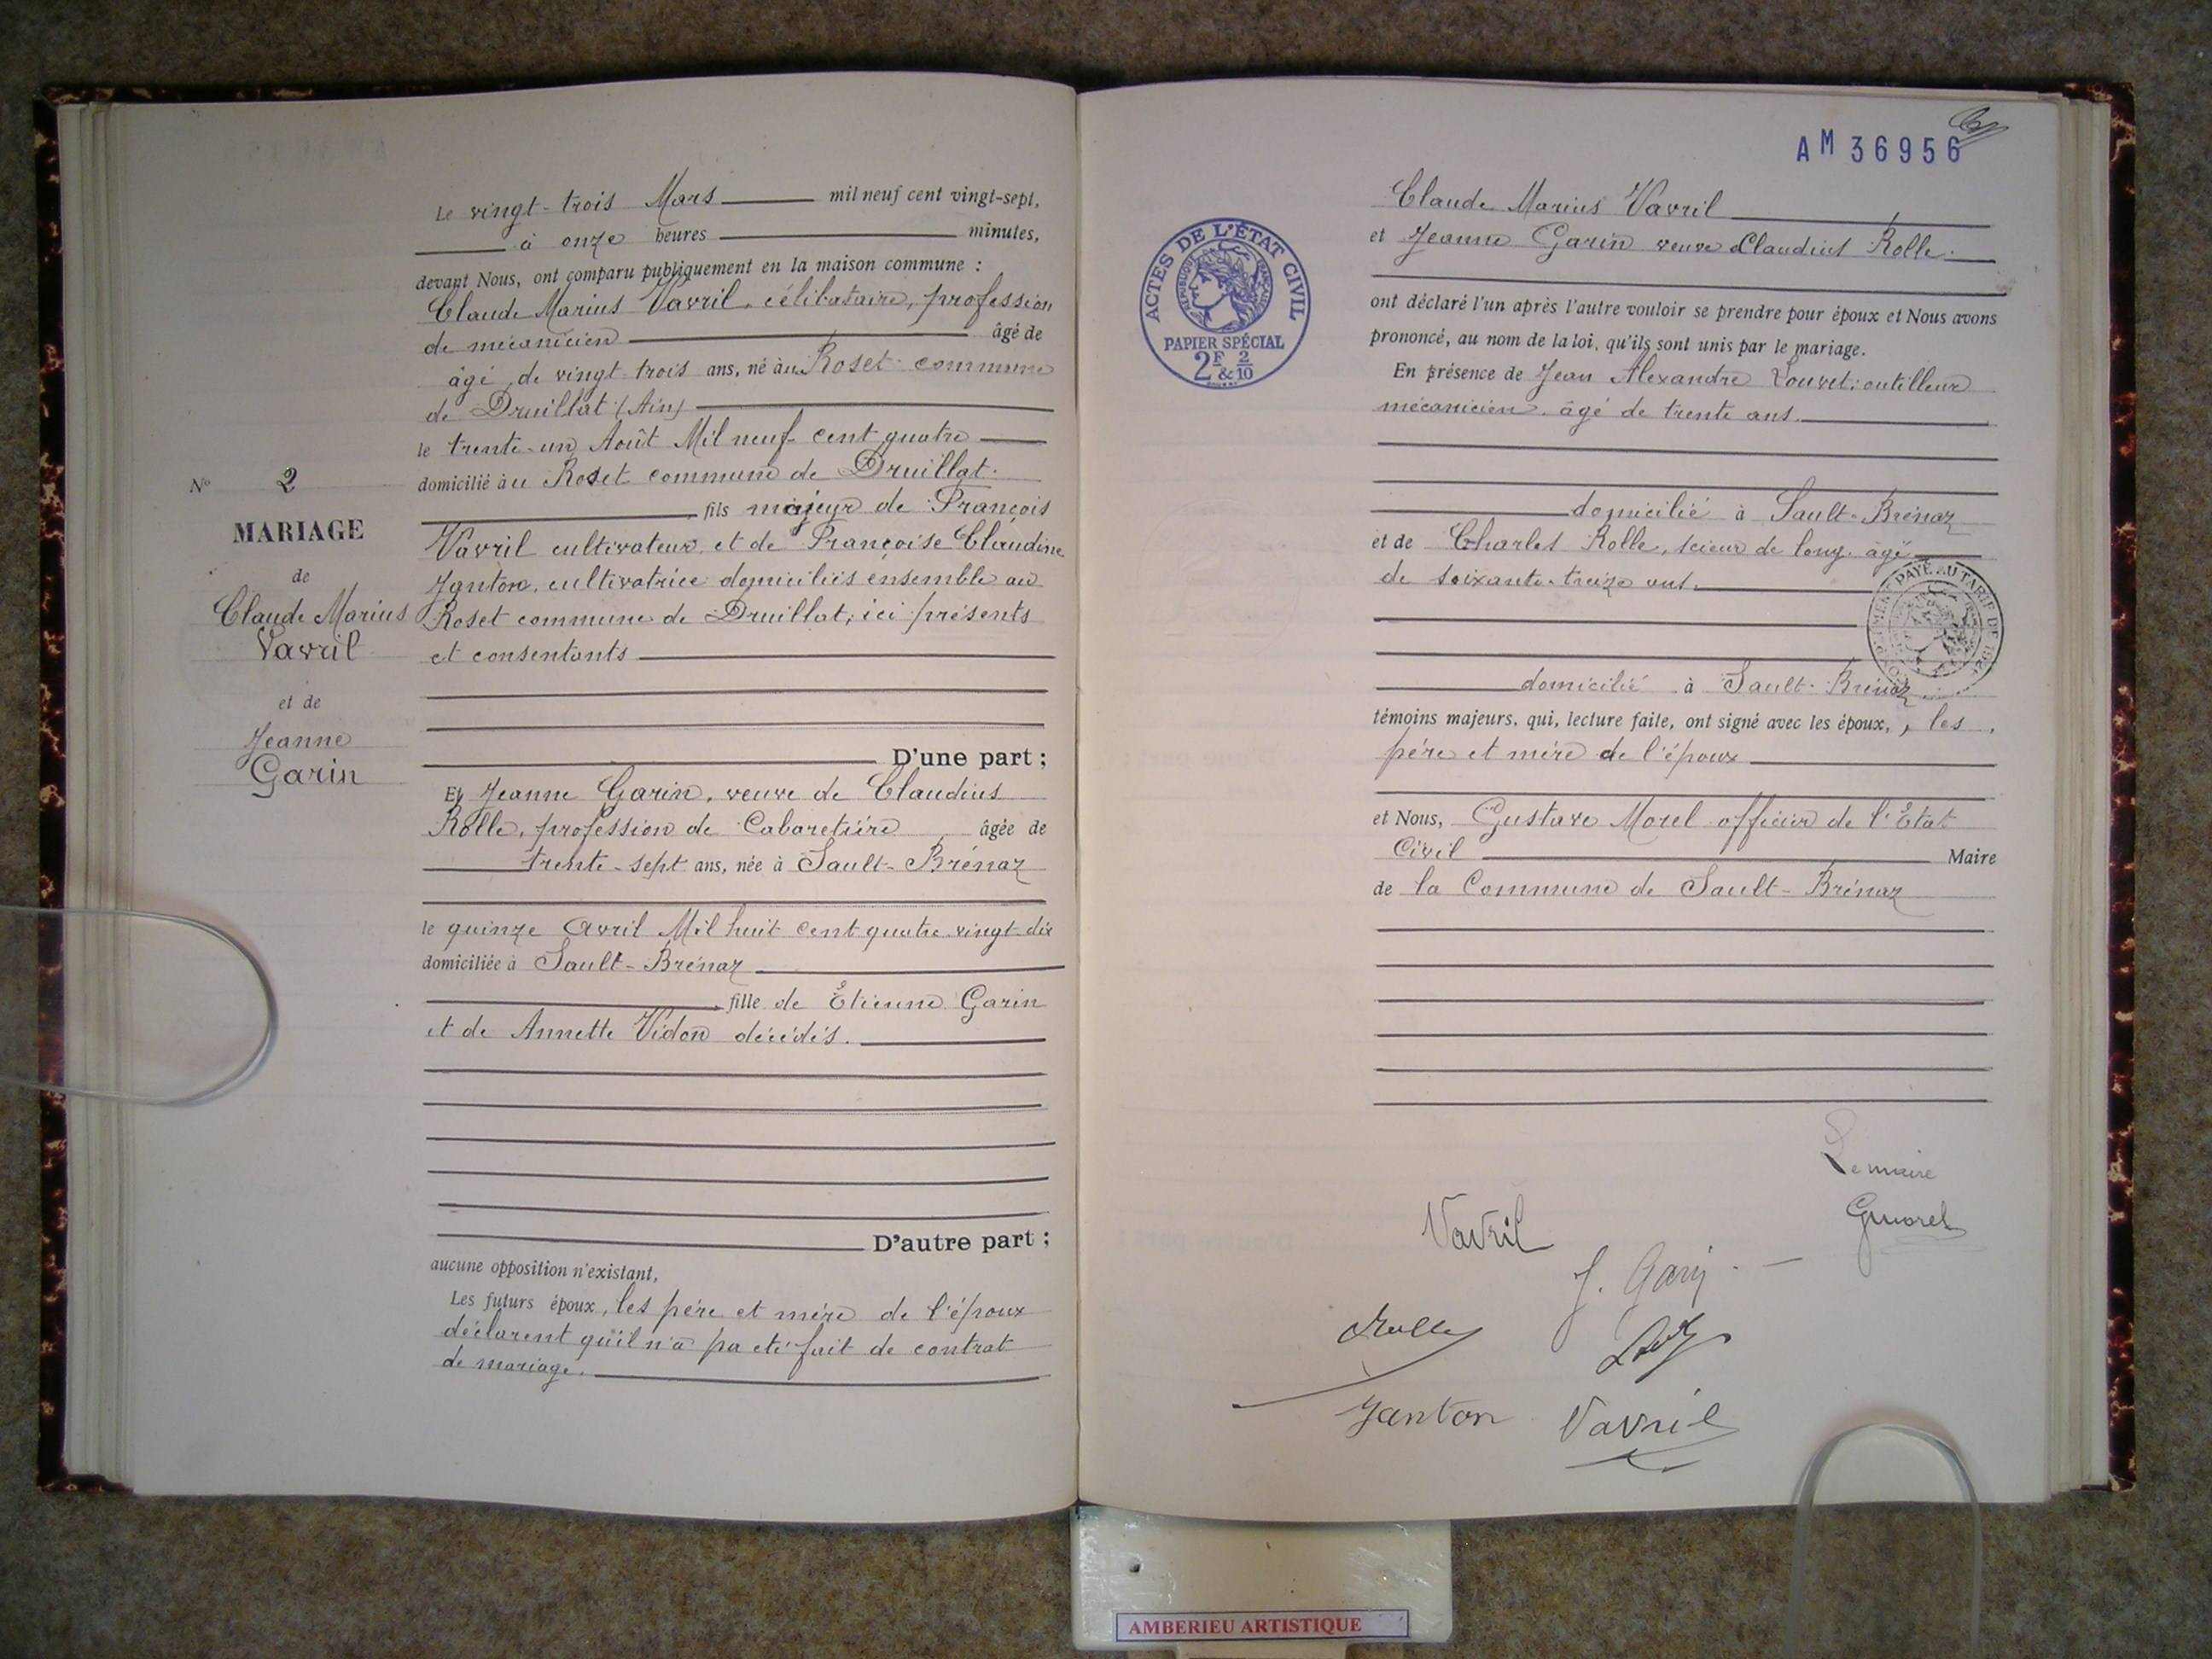 Le vingt-trois Mars mil neuf cent vingt-sept,
à onze heures minutes,
devant Nous, ont comparu publiquement en la maison commune :
Claude Marius Vavril, célibataire, profession
de mécanicien âgé de
âgé de vingt trois ans, né à au Roset commune
de Druillat (Ain)
le trente-un Août Mil neuf cent quatre
domicilié à u Roset commune de Druillat.
fils majeur de François
Vavril cultivateur et de Françoise Claudine
Janton, cultivatrice domiciliés ensemble au
Roset commune de Druillat, ici présents
et consentants
D'une part ;
Nº 2
MARIAGE
de
Claude Marius
Vavril
et de
Jeanne
Garin
Et Jeanne Garin, veuve de Claudius
Rolle, profession de Cabaretière âgée de
trente-sept ans, née à Sault-Brénaz
le quinze Avril Mil huit cent quatre vingt-dix
domiciliée à Sault-Brénaz
fille de Etienne Garin
et de Annette Vidon décédés.
D'autre part ;
aucune opposition n'existant,
Les futurs époux, les père et mère de l'époux
déclarent qu'il n'a pa été fait de contrat
de mariage.
AM 36956
ACTES DE L'ÉTAT CIVIL
RÉPUBLIQUE FRANÇAISE
PAPIER SPÉCIAL
2F & 2/10
Claude Marius Vavril
et Jeanne Garin veuve Claudius Rolle.
ont déclaré l'un après l'autre vouloir se prendre pour époux et Nous avons
prononcé, au nom de la loi, qu'ils sont unis par le mariage.
En présence de Jean Alexandre Louvet, outilleur
mécanicien, âgé de trente ans.
domicilié à Sault-Brénaz
et de Charles Rolle, scieur de long, âgé
de soixante-treize ans.
PAYÉ AU TARIF DE
domicilié à Sault-Brénaz
témoins majeurs, qui, lecture faite, ont signé avec les époux, , les
père et mère de l'époux
et Nous, Gustave Morel officier de l'Etat
Civil Maire
de la Commune de Sault-Brénaz
Le maire
Gmorel
Vavril
J. Garin
Rolle
Janton
Vavril
AMBERIEU ARTISTIQUE